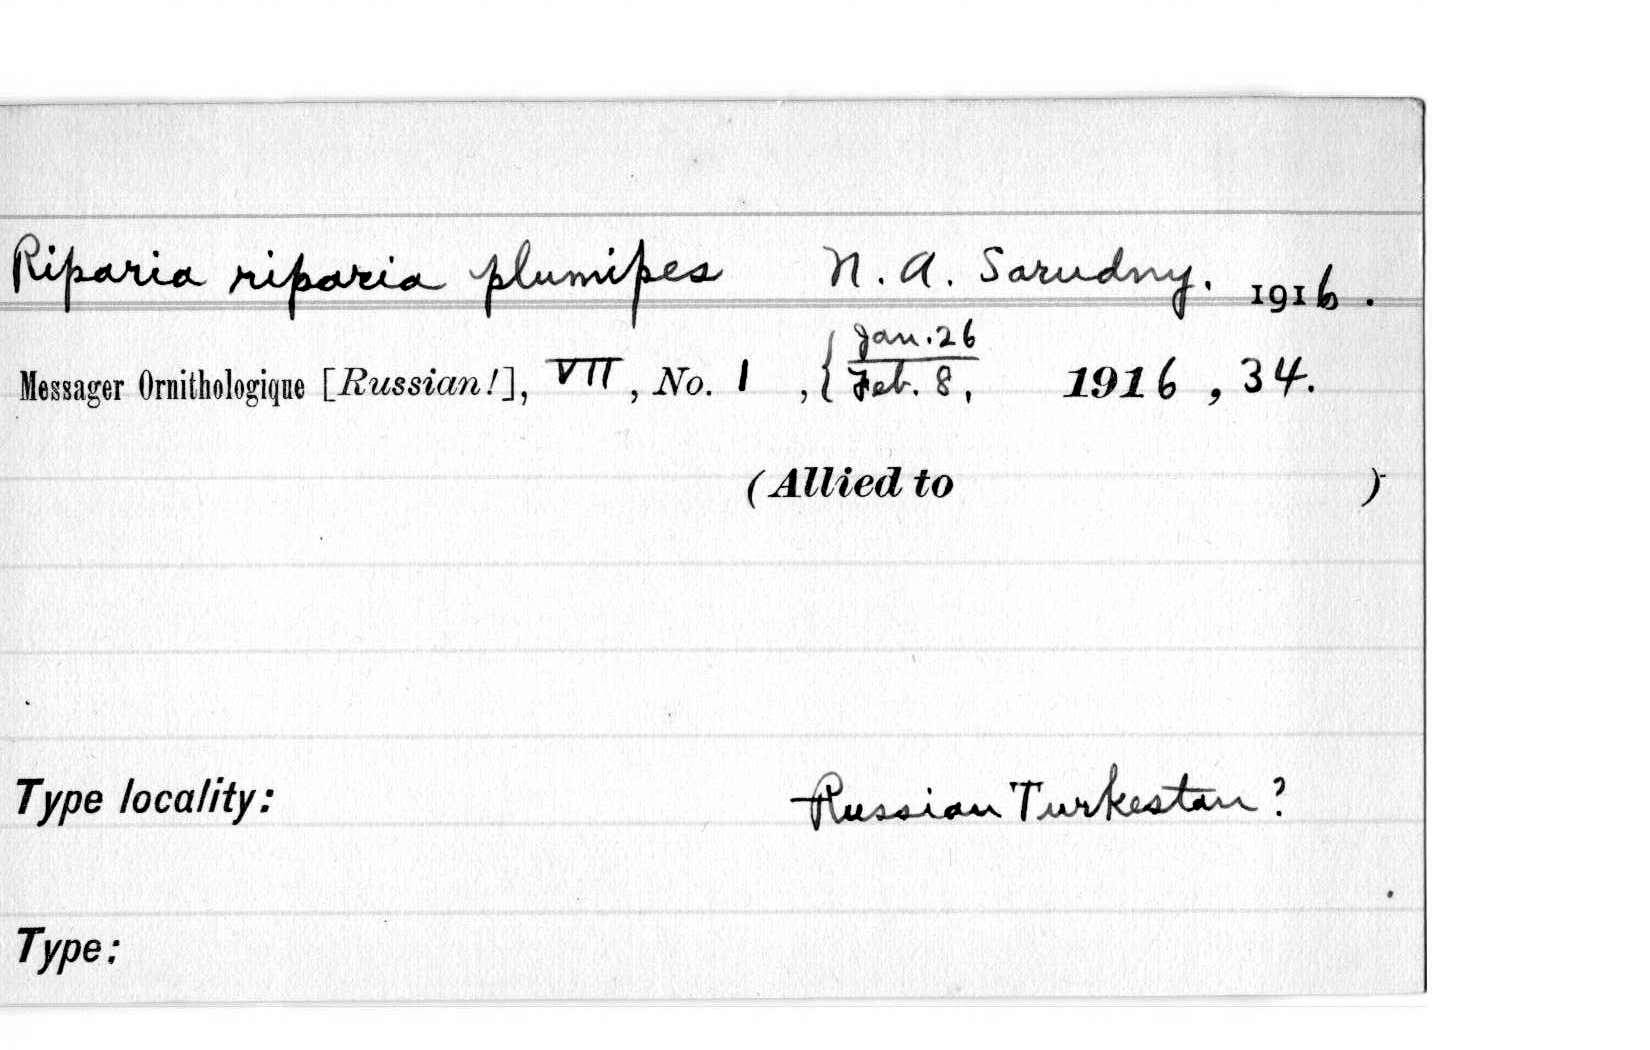 Riparia riparia plumipes N. A. Sarudny. 1916.
Messager Ornithologique [Russian!], VII, No. 1, { Jan. 26 / Feb. 8, 1916, 34.
(Allied to )
Type locality: Russian Turkestan?
Type: